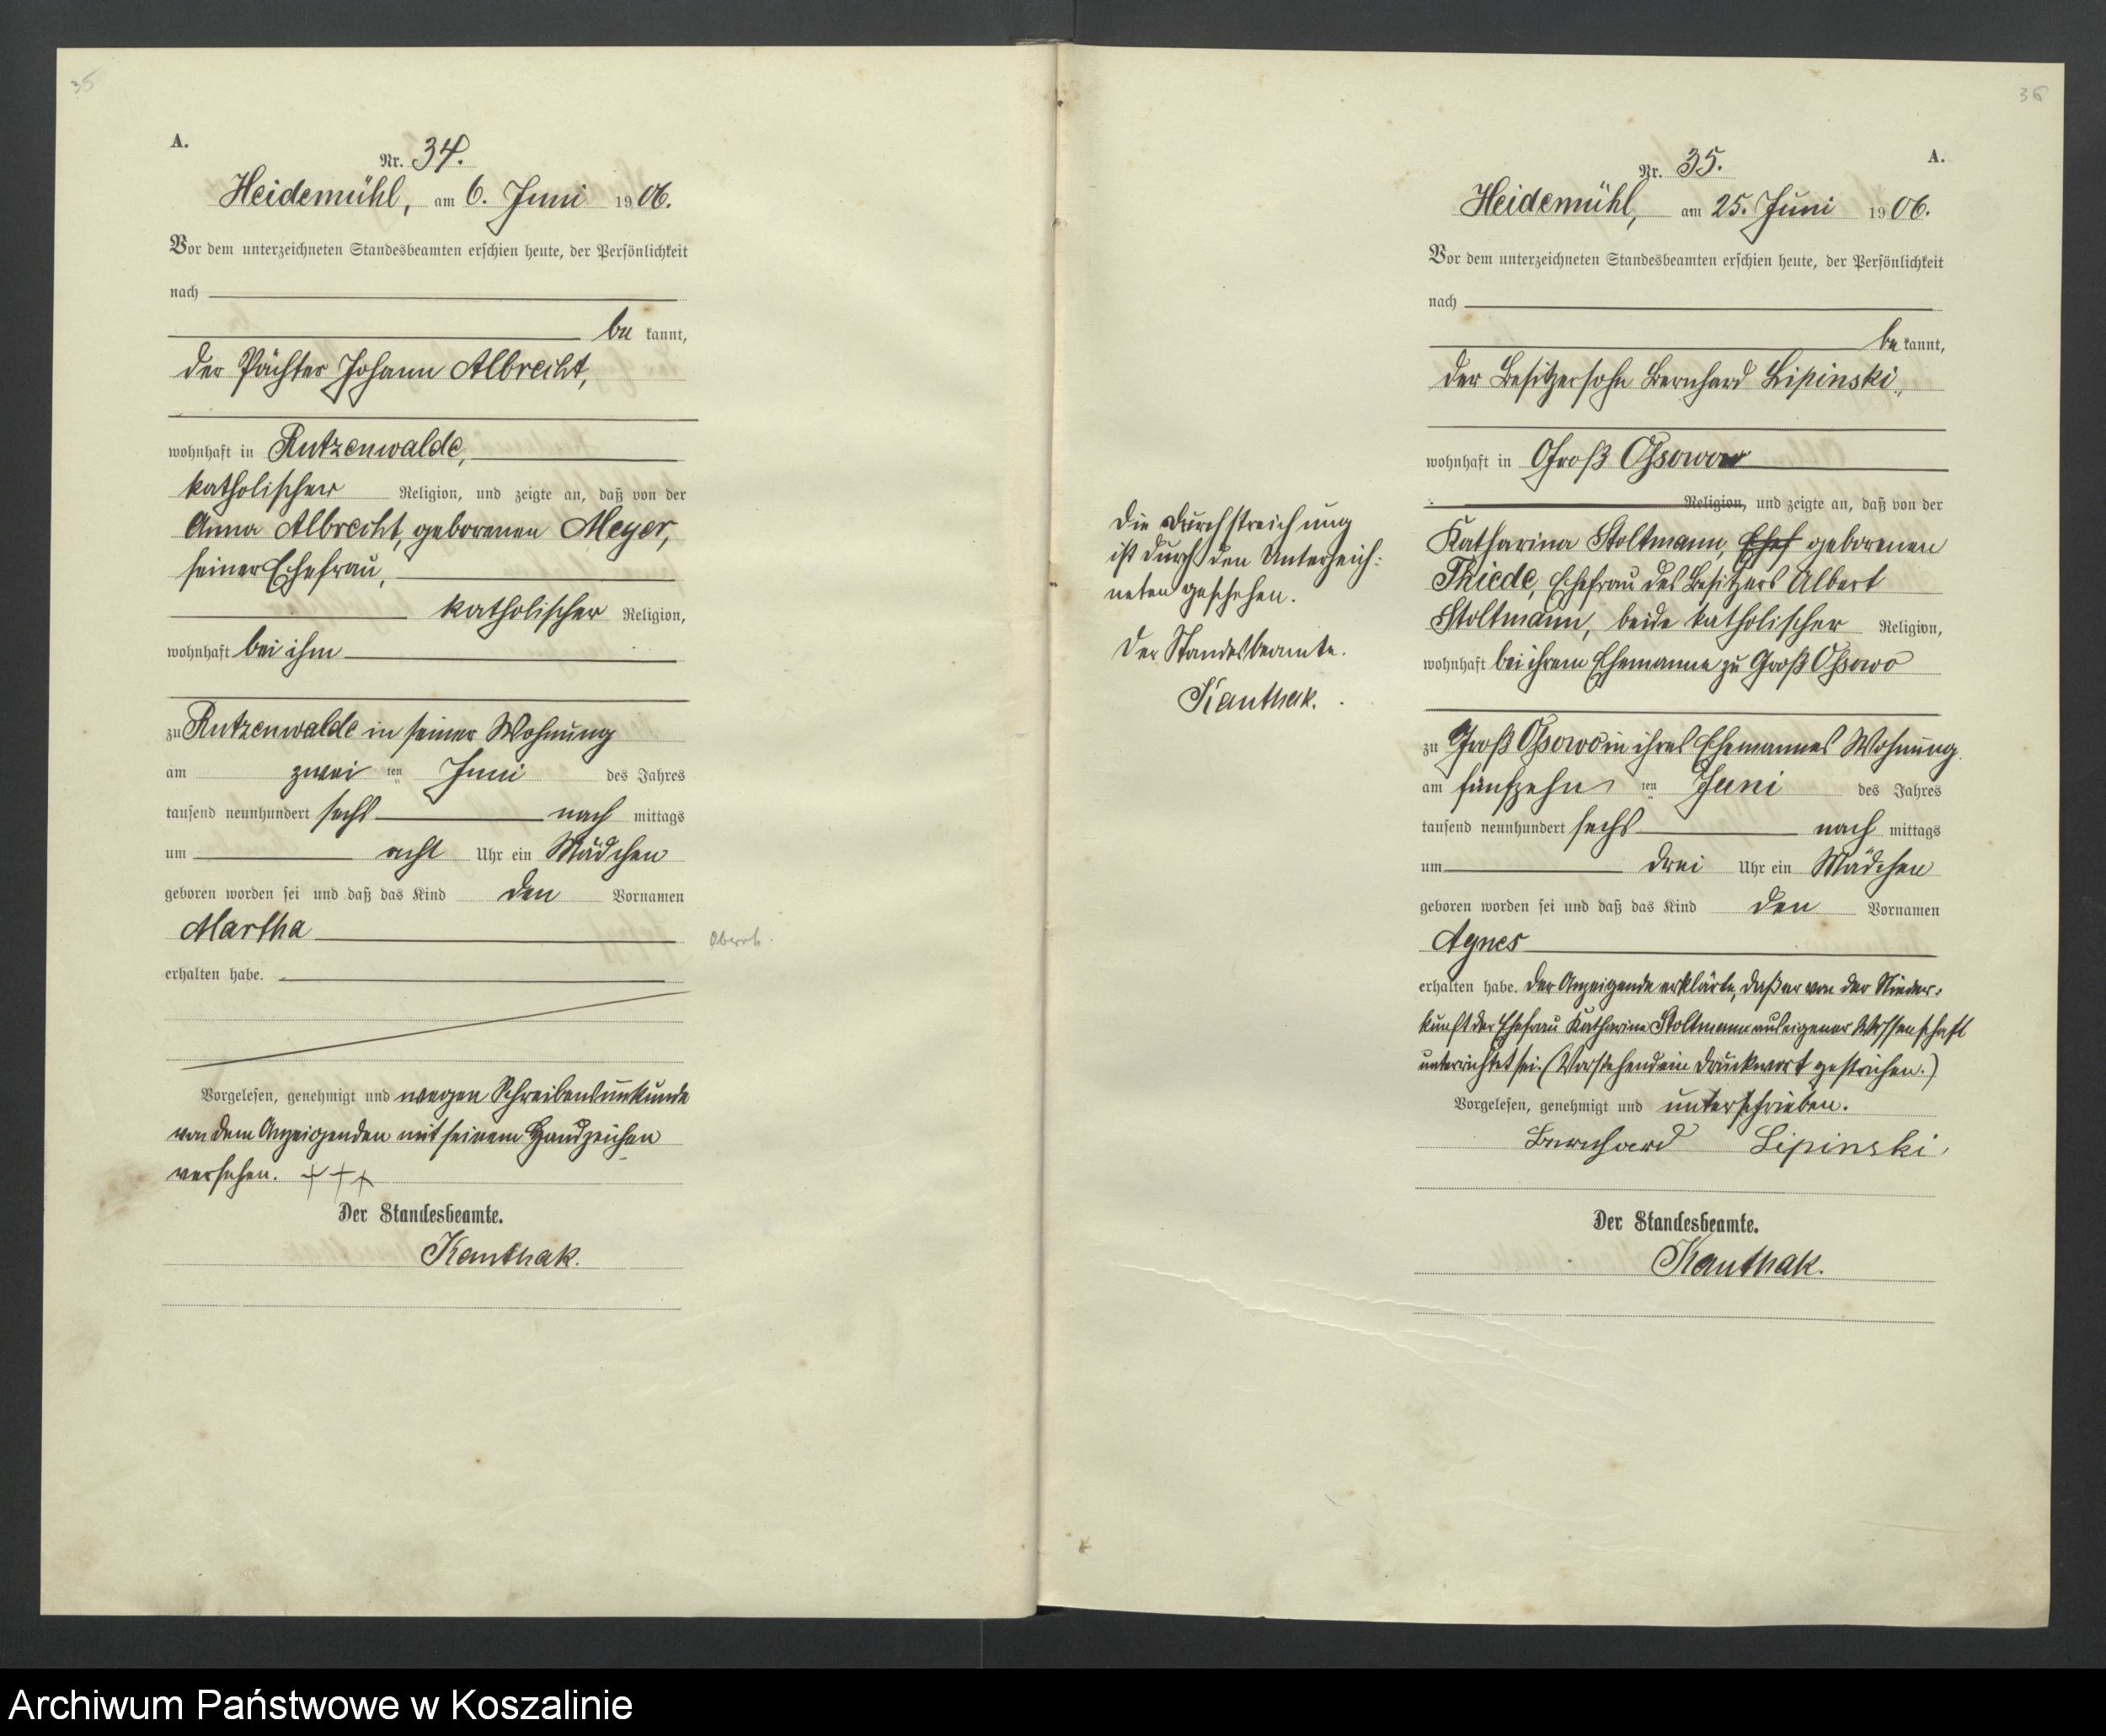 35
A.
Nr. 34.
Heidemühl, am 6. Juni 1906.
Vor dem unterzeichneten Standesbeamten erschien heute, der Persönlichkeit
nach
be kannt,
der Pächter Johann Albrecht,
wohnhaft in Rutzenwalde,
katholischer Religion, und zeigte an, daß von der
Anna Albrecht, geborenen Meyer,
seiner Ehefrau,
katholischer Religion,
wohnhaft bei ihm
zu Rutzenwalde in seiner Wohnung
am zwei ten Juni des Jahres
tausend neunhundert sechs nach mittags
um acht Uhr ein Mädchen
geboren worden sei und daß das Kind den Vornamen
Martha
erhalten habe.
Vorgelesen, genehmigt und wegen Schreibensunkunde
von dem Anzeigenden mit seinem Handzeichen
versehen. +++
Der Standesbeamte.
Kanthak.
36
A.
Nr. 35.
Heidemühl, am 25. Juni 1906.
Vor dem unterzeichneten Standesbeamten erschien heute, der Persönlichkeit
nach
be kannt,
der Besitzersohn Bernhard Lipinski,
wohnhaft in Groß Ossowo
Religion, und zeigte an, daß von der
Katharina Stoltmann, Ehef geborenen
Thiede, Ehefrau des Besitzers Albert
Stoltmann, beide katholischer Religion,
wohnhaft bei ihrem Ehemanne zu Groß Ossowo
zu Groß Ossowo in ihres Ehemannes Wohnung
am fünfzehn ten Juni des Jahres
tausend neunhundert sechs nach mittags
um drei Uhr ein Mädchen
geboren worden sei und daß das Kind den Vornamen
Agnes
erhalten habe. Der Anzeigende erklärte, daß er von der Nieder-
kunft der Ehefrau Katharina Stoltmann aus eigener Wissenschaft
unterrichtet sei. (Vorstehend ein Druckwort gestrichen.)
Vorgelesen, genehmigt und unterschrieben.
Bernhard Lipinski
Der Standesbeamte.
Kanthak.
Die Durchstreichung
ist durch den Unterzeich-
neten geschehen.
Der Standesbeamte.
Kanthak.
Archiwum Państwowe w Koszalinie